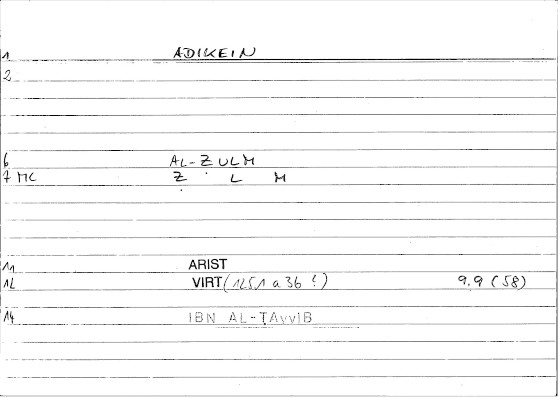 1 ADIKEIN
2
6 AL-ẒULM
7 MC Ẓ L M
11 ARIST
12 VIRT (1251 a 36 !) 9.9 (58)
14 IBN AL-ṬAyyIB